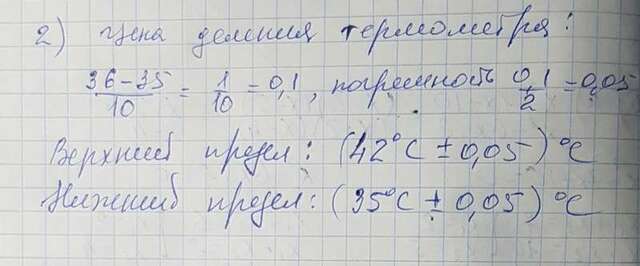 2) Цена деления термометра:
36-35/10 = 1/10 = 0,1, погрешность 0,1/2 = 0,05
Верхний предел: (42°C ± 0,05)°C
Нижний предел: (35°C ± 0,05)°C